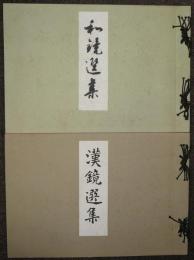 和鏡選集
漢鏡選集